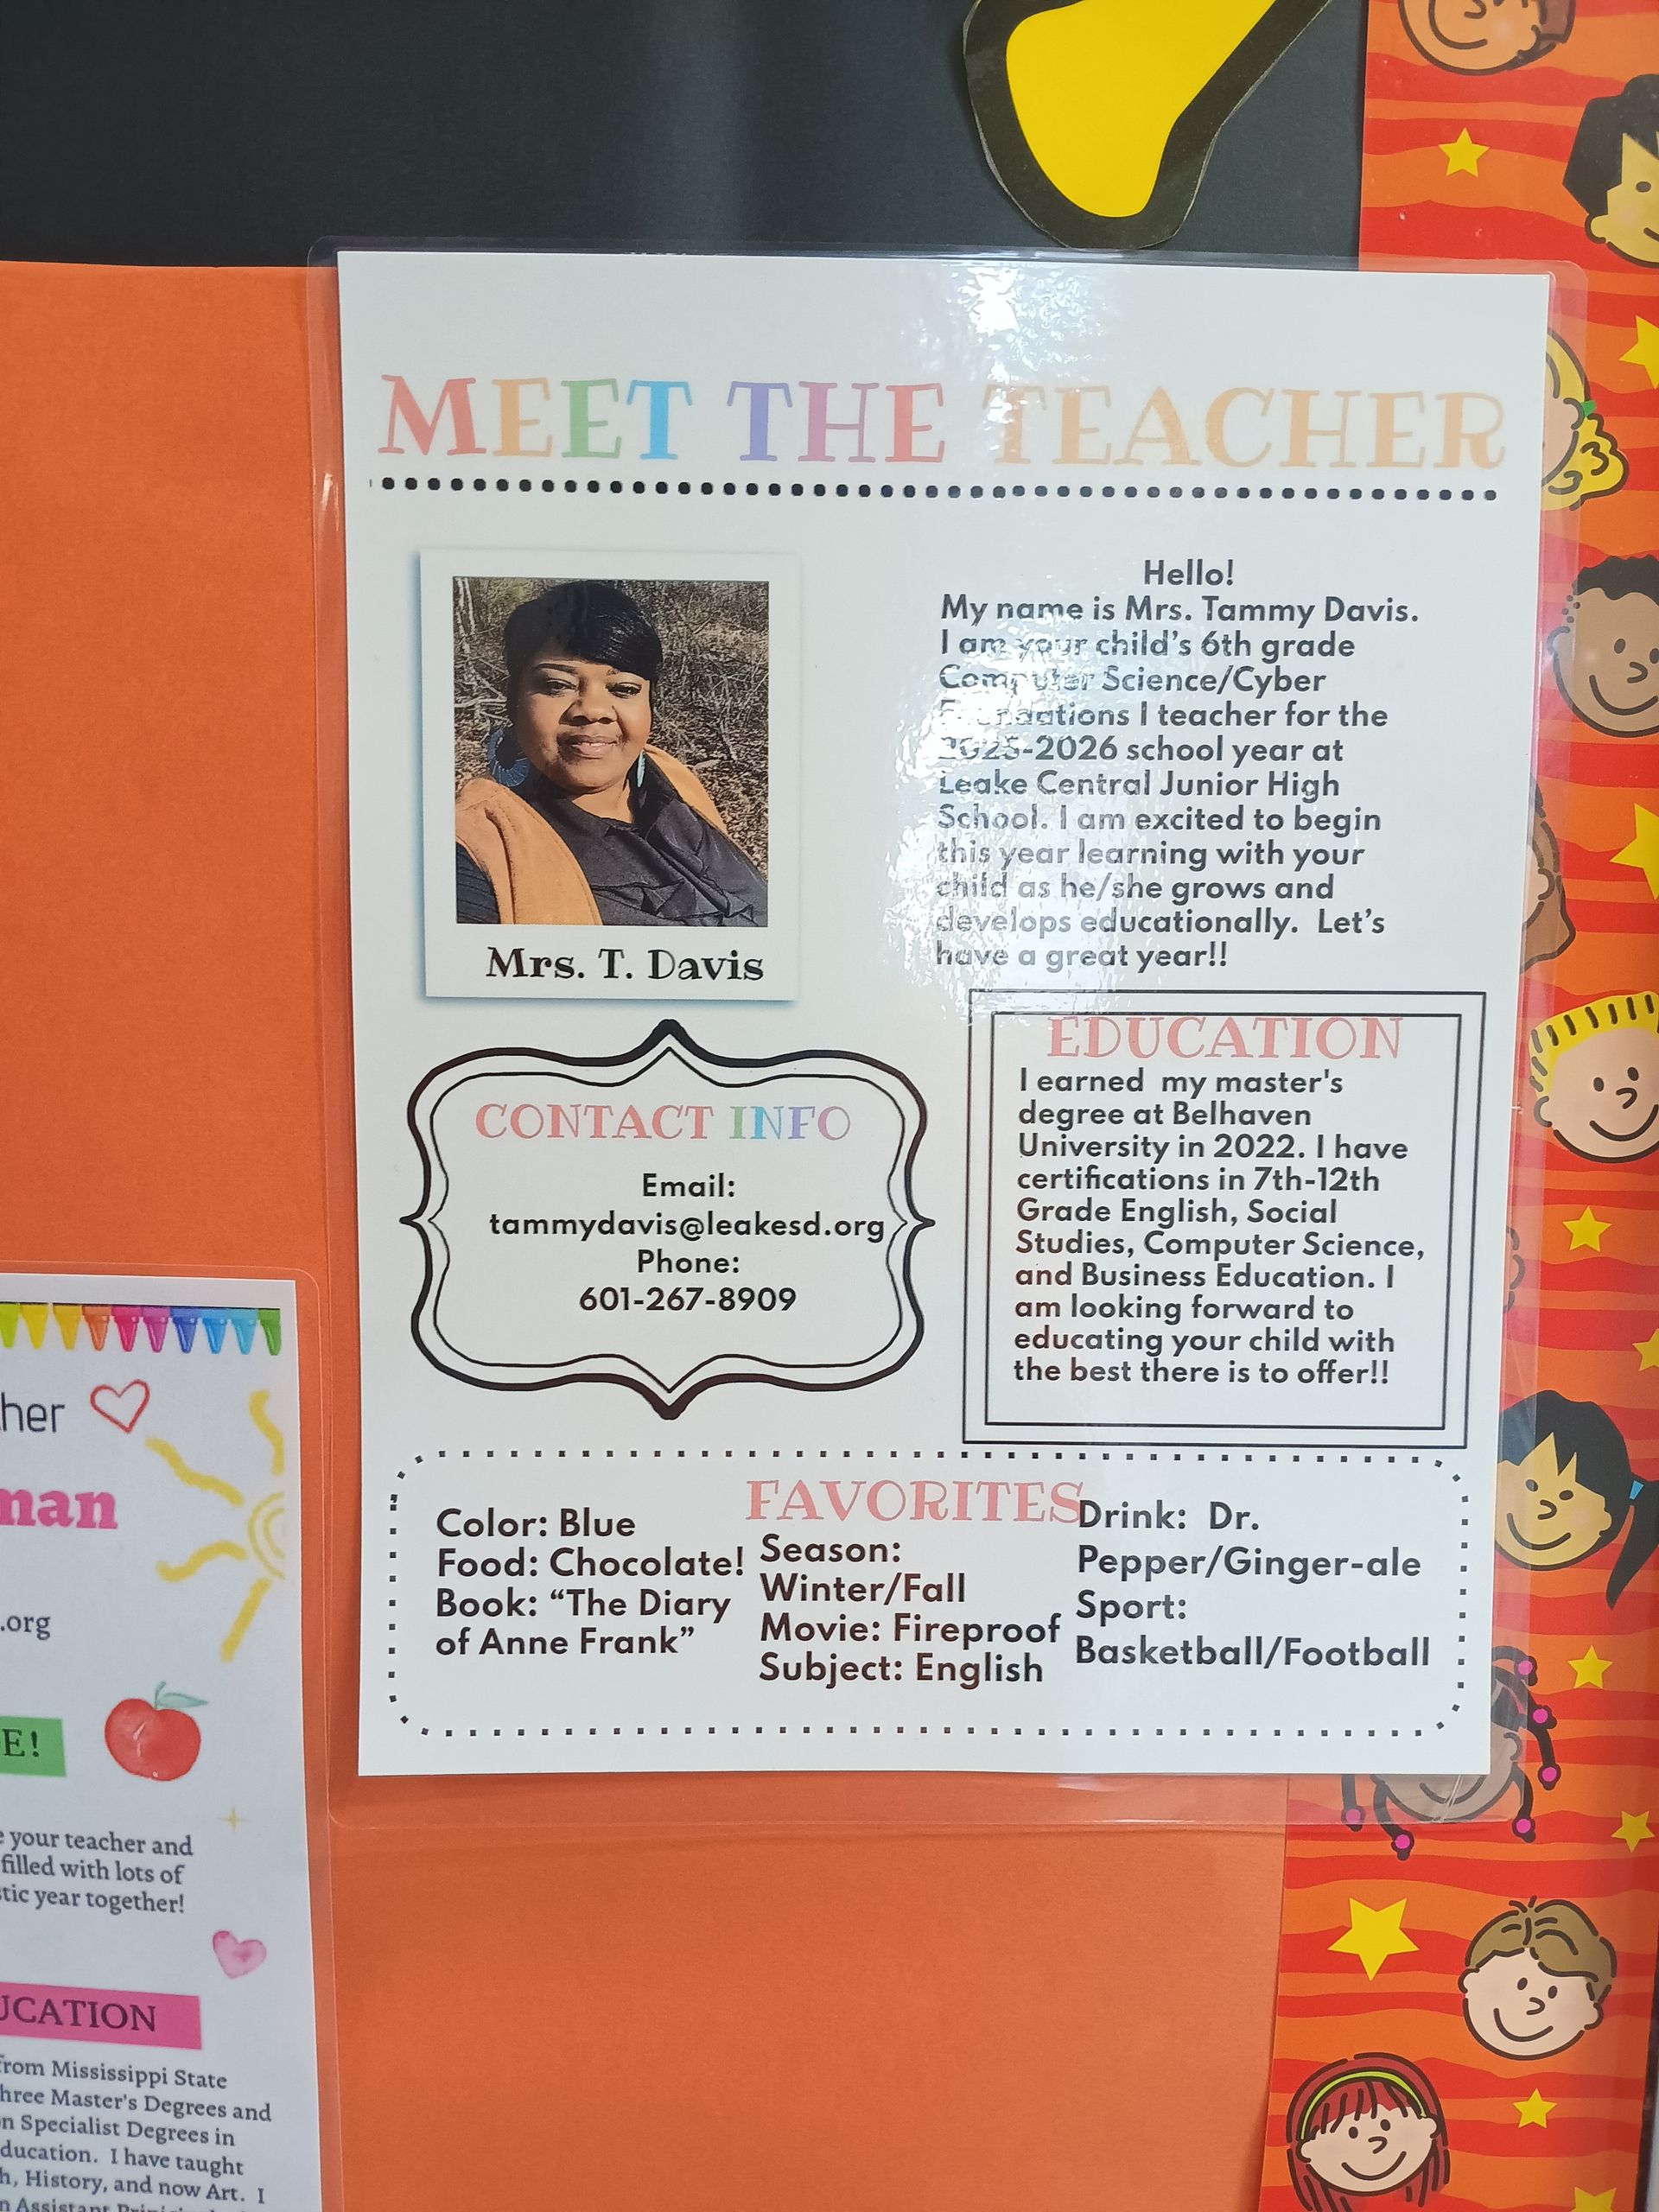 MEET THE TEACHER
Mrs. T. Davis
Hello!
My name is Mrs. Tammy Davis.
I am your child's 6th grade
Computer Science/Cyber
Foundations I teacher for the
2025-2026 school year at
Leake Central Junior High
School. I am excited to begin
this year learning with your
child as he/she grows and
develops educationally. Let's
have a great year!!
CONTACT INFO
Email:
tammydavis@leakesd.org
Phone:
601-267-8909
EDUCATION
I earned my master's
degree at Belhaven
University in 2022. I have
certifications in 7th-12th
Grade English, Social
Studies, Computer Science,
and Business Education. I
am looking forward to
educating your child with
the best there is to offer!!
FAVORITES
Color: Blue
Food: Chocolate!
Book: “The Diary
of Anne Frank”
Season:
Winter/Fall
Movie: Fireproof
Subject: English
Drink: Dr.
Pepper/Ginger-ale
Sport:
Basketball/Football
her
man
.org
E!
your teacher and
filled with lots of
tic year together!
UCATION
from Mississippi State
hree Master's Degrees and
n Specialist Degrees in
ducation. I have taught
h, History, and now Art. I
n Assistant